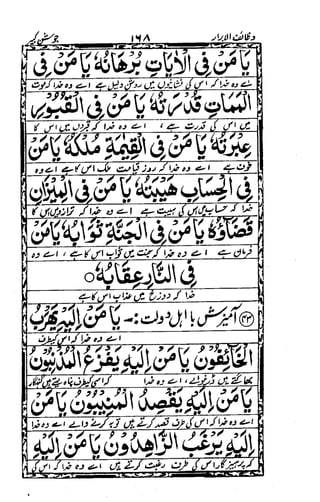 وظائف الابرار ۱۶۸ جوشن کبیر
يَا مَنْ فِى الْاٰيَاتِ بُرْهَانُهُ يَا مَنْ فِى
اے وہ خدا کہ اس کی نشانیوں میں روشن دلیل ہے اے وہ خدا کہ موت
الْمَمَاتِ قُدْرَتُهُ يَا مَنْ فِى الْقُبُوْرِ
میں اس کی قدرت ہے ، اے وہ خدا کہ قبروں میں اس کا
عِبْرَتُهُ يَا مَنْ فِى الْقِيٰمَةِ مُلْكُهُ يَا مَنْ
خوف ہے اے وہ خدا کہ روز قیامت ملک اس کا ہے اے وہ
فِى الْحِسَابِ هَيْبَتُهُ يَا مَنْ فِى الْمِيْزَانِ
خدا کہ حساب میں اس کی ہیبت ہے اے وہ خدا کہ ترازو میں اس کا
قَضَاؤُهُ يَا مَنْ فِى الْجَنَّةِ ثَوَابُهُ يَا مَنْ
فرمان ہے اے وہ خدا کہ جنت میں ثواب اس کا ہے ، اے وہ
فِى النَّارِ عِقَابُهُ ○
خدا کہ دوزخ میں عذاب اس کا ہے
(۲۳) آمیزش با اہل دولت :- يَا مَنْ اِلَيْهِ يَهْرَبُ
اے وہ خدا کہ اس کی طرف
الْخَائِفُوْنَ يَا مَنْ اِلَيْهِ يَفْزَعُ الْمُذْنِبُوْنَ
بھاگتے ہیں ڈرنے والے ، اے وہ خدا کہ اسی کی طرف پناہ لیتے ہیں گنہگار
يَا مَنْ اِلَيْهِ يَقْصِدُ الْمُنِيْبُوْنَ يَا مَنْ
اے وہ خدا کہ اس کی طرف قصد کرتے ہیں توبہ کرنے والے اے وہ خدا
اِلَيْهِ يَرْغَبُ الزَّاهِدُوْنَ يَا مَنْ اِلَيْهِ
کہ پرہیزگار اس کی طرف رغبت کرتے ہیں اے وہ خدا کہ اس کی